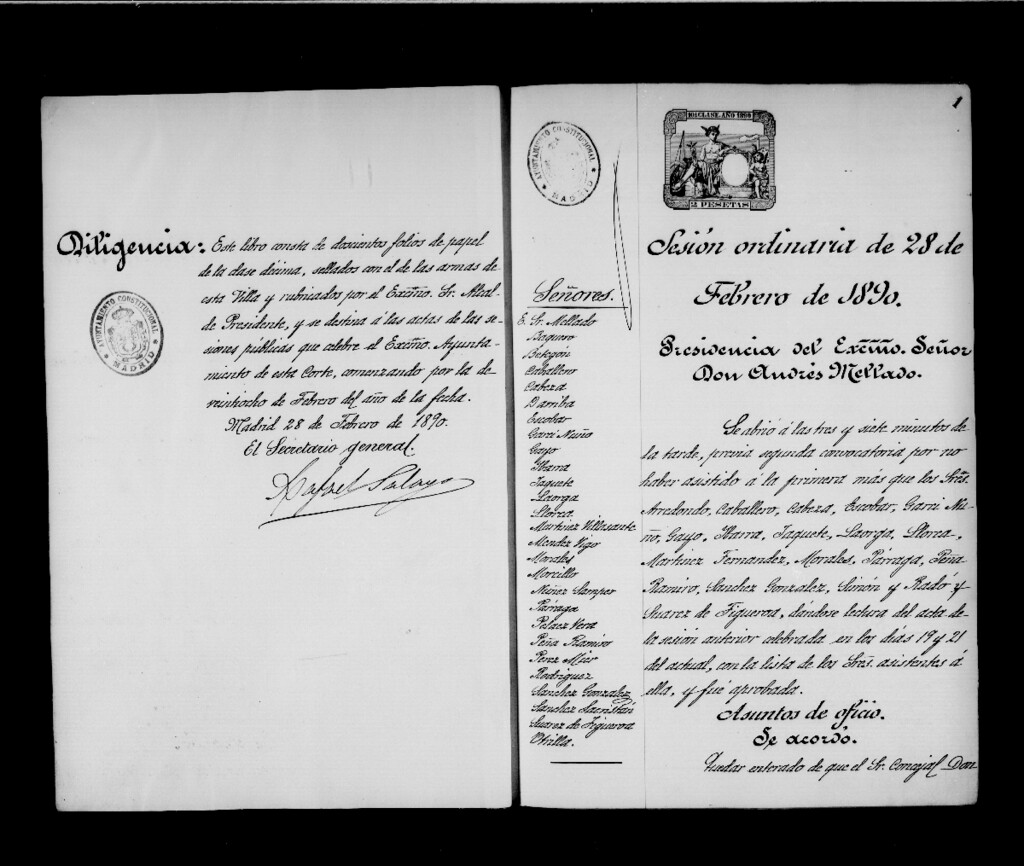 Diligencia: Este libro consta de doscientos folios de papel
de la clase décima, sellados con el de las armas de
esta Villa y rubricados por el Excmo. Sr. Alcal-
de Presidente, y se destina á las actas de las se-
siones públicas que celebre el Excmo. Ayunta-
miento de esta Corte, comenzando por la de
veintiocho de Febrero del año de la fecha.
Madrid 28 de Febrero de 1890.
El Secretario general.
Rafael Salaya
AYUNTAMIENTO CONSTITUCIONAL
MADRID
AYUNTAMIENTO CONSTITUCIONAL
MADRID
Señores.
E. Sr. Mellado
Baquero
Betegón
Caballero
Cabeza
Darriba
Escobar
Garci Nuño
Gayo
Ibarra
Jaquete
Laorga
Llorca
Martinez Villasante
Mendez Vigo
Morales
Morcillo
Nuñez Samper
Párraga
Pelaez Vera
Peña Ramiro
Perez Mier
Rodriguez
Sanchez Gonzalez
Sanchez Sacristán
Suarez de Figueroa
Utrilla.
1
10ª CLASE. AÑO 1890
2 PESETAS
Sesión ordinaria de 28 de
Febrero de 1890.
Presidencia del Excmo. Señor
Don Andrés Mellado.
Se abrió á las tres y siete minutos de
la tarde, previa segunda convocatoria por no
haber asistido á la primera más que los Sres.
Arredondo, Caballero, Cabeza, Escobar, Garci Nu-
ño, Gayo, Ibarra, Jaquete, Laorga, Llorca,
Martinez Fernandez, Morales, Párraga, Peña
Ramiro, Sanchez Gonzalez, Simón y Radó y
Suarez de Figueroa, dándose lectura del acta de
la sesión anterior celebrada en los dias 19 y 21
del actual, con la lista de los Sres. asistentes á
ella, y fué aprobada.
Asuntos de oficio.
Se acordó.
Quedar enterado de que el Sr. Concejal Don